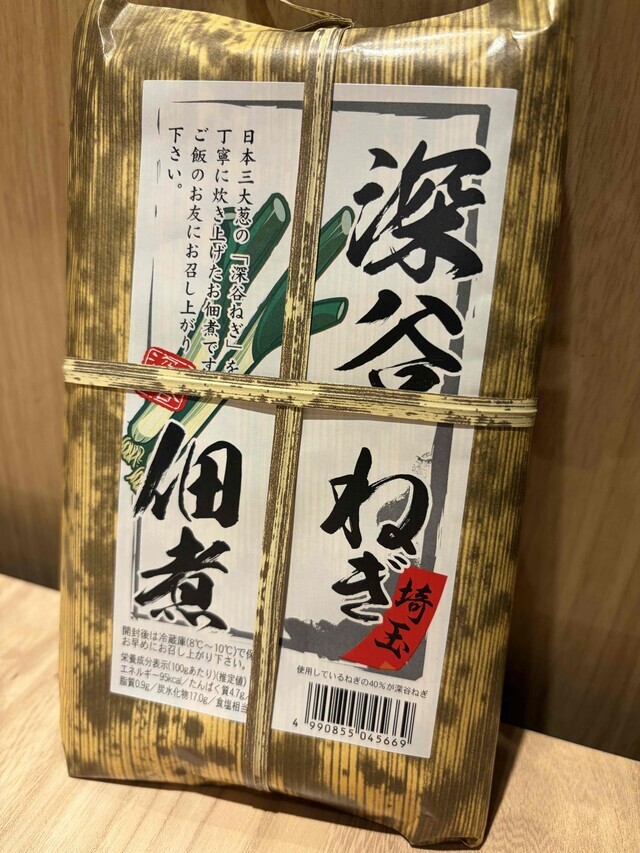 深谷
ねぎ
佃煮
埼玉
日本三大葱の「深谷ねぎ」を
丁寧に炊き上げたお佃煮です
ご飯のお友にお召し上がり
下さい。
開封後は冷蔵庫(8℃〜10℃)で保
お早めにお召し上がり下さい。
栄養成分表示(100gあたり)(推定値)
エネルギー95kcal/たんぱく質4.7g/
脂質0.9g/炭水化物17.0g/食塩相当
使用しているねぎの40%が深谷ねぎ
4 990855 045669